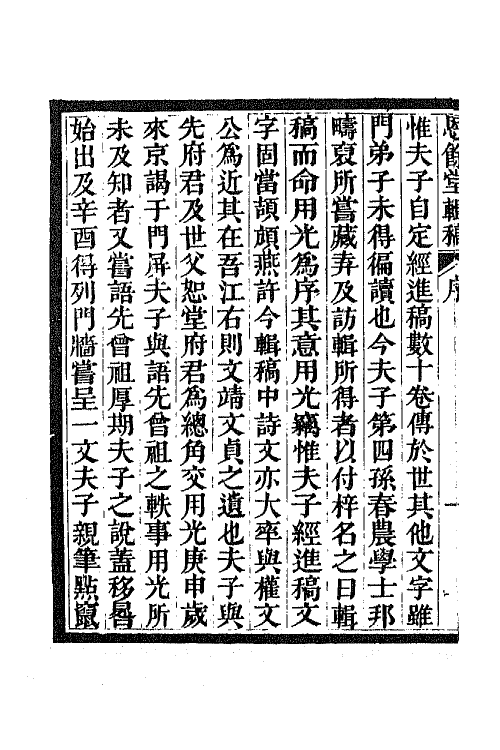 恩餘堂輯稿 序 一
惟夫子自定經進稿數十卷傳於世其他文字雖
門弟子未得徧讀也今夫子第四孫春農學士邦
疇裒所嘗藏弆及訪輯所得者以付梓名之曰輯
稿而命用光爲序其意用光竊惟夫子經進稿文
字固當頡頏燕許今輯稿中詩文亦大率與權文
公爲近其在吾江右則文靖文貞之遺也夫子與
先府君及世父恕堂府君爲總角交用光庚申歲
來京謁于門屏夫子與語先曾祖之軼事用光所
未及知者又嘗語先曾祖厚期夫子之說蓋移晷
始出及辛酉得列門牆嘗呈一文夫子親筆點竄